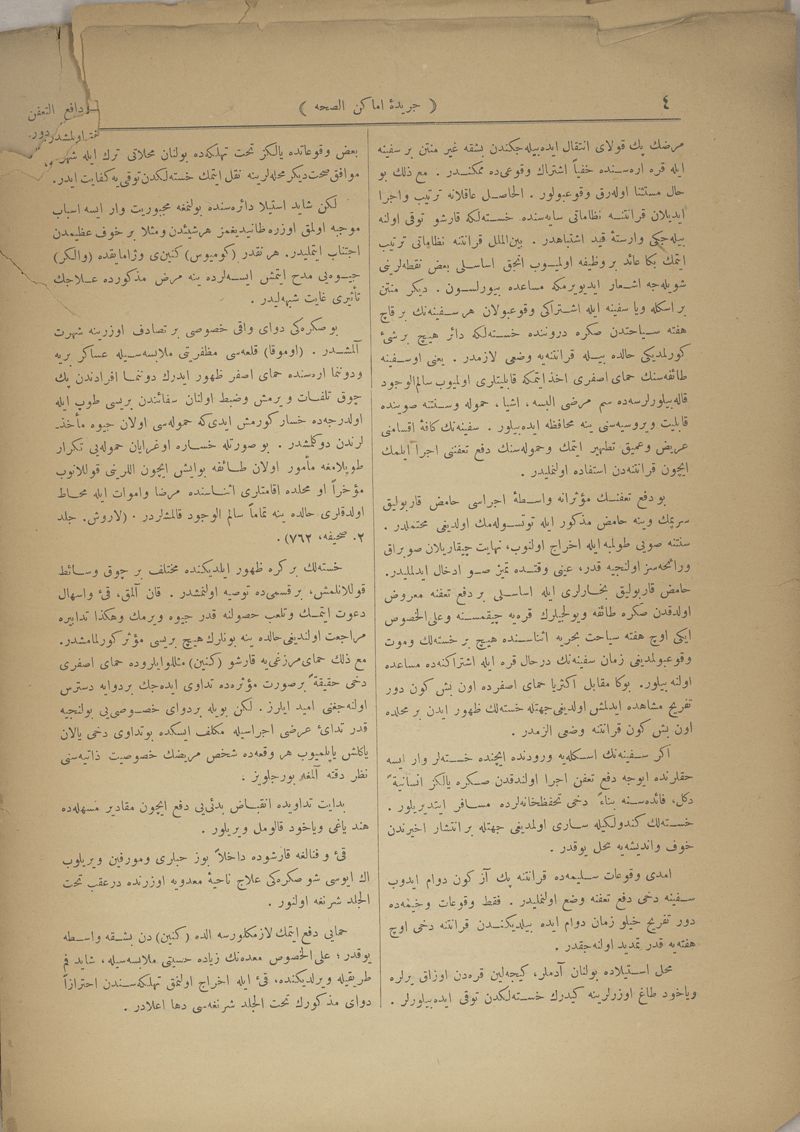 ٤
( جریدهٔ اماكن الصحه )
مرضك پك قولای انتقال ایده‌بیله‌جكندن بشقه غیر منتن بر سفینه
ایله قره اره‌سنده خفیاً اشتراك وقوعی‌ده ممكندر . مع ذلك بو
حال مستثنا اوله‌رق وقوعبولور . الحاصل عاقلانه ترتیب واجرا
ایدیلان قرانتنه نظاماتی سایه‌سنده خسته‌لكه قارشو توقی اولنه
بیله‌جكی وارستهٔ قید اشتباهدر . بین‌الملل قرانتنه نظاماتی ترتیب
ایتمك بكا عائد بر وظیفه اولمیوب انجق اساسلی بعض نقطه‌لرینی
شویله‌جه اشعار ایدیویرمكه مساعده بیورلسون . دیكر منتن
بر اسكله ویا سفینه ایله اشتراكی وقوعبولان هر سفینه‌نك بر قاچ
هفته سیاحتدن صكره دروننده خسته‌لكه دائر هیچ بر شیٔ
كورلمدیكی حالده بیله قرانتنه‌یه وضعی لازمدر . یعنی او سفینه
طائفه‌سنك حمای اصفری اخذ ایتمكه قابلیتلری اولمیوب سالم‌الوجود
قاله‌بیلورلرسه‌ده سم مرضی البسه ، اشیا ، حموله وسنتنه صوینده
قابلیت ویروسیه‌سنی ینه محافظه ایده‌بیلور . سفینه‌نك كافهٔ اقسامنی
عریض وعمیق تطهیر ایتمك وحموله‌سنك دفع تعفننی اجرا ایلمك
ایچون قرانتنه‌دن استفاده اولنملیدر .
بو دفع تعفنك مؤثرانه واسطهٔ اجراسی حامض قاربولیق
سرپمك وینه حامض مذكور ایله توتسوله‌مك اولدیغی محتملدر .
سنتنه صویی طولمبه ایله اخراج اولنوب ، نهایت چیقاریلان صو براق
ورائحه‌سز اولنجیه قدر ، عینی وقتده تمیز صو ادخال ایدلملیدر .
حامض قاربولیق بخارلری ایله اساسلی بر دفع تعفنه معروض
اولدقدن صكره طائفه ویولجیلرك قره‌یه چیقمسنه وعلی‌الخصوص
ایكی اوچ هفته سیاحت بحریه اثناسنده هیچ بر خسته‌لك وموت
وقوعبولمدیغی زمان سفینه‌نك درحال قره ایله اشتراكنه‌ده مساعده
اولنه بیلور . بوكا مقابل اكثریا حمای اصفرده اون بش كون دور
تفریخ مشاهده ایدلمش اولدیغی جهتله خسته‌لك ظهور ایدن بر محلده
اون بش كون قرانتنه وضعی الزمدر .
اكر سفینه‌نك اسكله‌یه ورودنده ایچنده خسته‌لر وار ایسه
حقلرنده ایوجه دفع تعفن اجرا اولندقدن صكره یالكز انسانیةً
دكل ، فائده‌سنه بناءً دخی تحفظخانه‌لرده مسافر ایتدیریلور .
خسته‌لك كندولكیله ساری اولمدیغی جهتله بر انتشار اخیرندن
خوف واندیشه‌یه محل یوقدر .
امدی وقوعات سلیمه‌ده قرانتنه پك آز كون دوام ایدوب
سفینه دخی دفع تعفنه وضع اولنملیدر . فقط وقوعات وخیمه‌ده
دور تفریخ خیلو زمان دوام ایده بیلدیكندن قرانتنه دخی اوچ
هفته‌یه قدر تمدید اولنه‌جقدر .
محل استیلاده بولنان آدملر ، كیجه‌لین قره‌دن اوزاق یرلره
ویاخود طاغ اوزرلرینه كیدرك خسته‌لكدن توقی ایده‌بیلورلر .
دافع التعفن
بعض وقوعاتده یالكز تحت تهلكه‌ده بولنان محلاتی ترك ایله شهر
موافق صحت دیكر محله‌لرینه نقل ایتمك خسته‌لكدن توقی‌یه كفایت ایدر.
لكن شاید استیلا دائره‌سنده بولنمغه مجبوریت وار ایسه اسباب
موجبه اولمق اوزره طانیدیغمز هر شیئدن ومثلا بر خوف عظیمدن
اجتناب ایتملیدر . هر نقدر (كومیوس) كنین‌ی وژامایقده (والكر)
جیوه‌یی مدح ایتمش ایسه‌لرده ینه مرض مذكورده علاجك
تأثیری غایت شبهه‌لیدر .
بو صكره‌كی دوای واقی خصوصی بر تصادف اوزرینه شهرت
آلمشدر . (اوموقا) قلعه‌سی مظفریتی ملابسه‌سیله عساكر بریه
ودوننما اره‌سنده حمای اصفر ظهور ایدرك دوننما افرادندن پك
چوق تلفات ویرمش وضبط اولنان سفائندن بریسی طوپ ایله
اولدرجه‌ده خسار كورمش ایدی‌كه حموله‌سی اولان جیوه مأخذ
لرندن دوكلمشدر . بو صورتله خساره اوغرایان حموله‌یی تكرار
طوپلامغه مأمور اولان طائفه بو ایش ایچون اللرینی قوللانوب
مؤخراً او محلده اقامتلری اثناسنده مرضا واموات ایله محاط
اولدقلری حالده ینه تماماً سالم الوجود قالمشلردر . (لاروش. جلد
٢. صحیفه، ٧٦٢) .
خسته‌لك بر كره ظهور ایلدیكنده مختلف بر چوق وسائط
قوللانلمش ، بر قسمی‌ده توصیه اولنمشدر . قان آلمق ، قیٔ واسهال
دعوت ایتمك وتلعب حصولنه قدر جیوه ویرمك وهكذا تدابیره
مراجعت اولندیغی حالده ینه بونلرك هیچ بریسی مؤثر كورلمامشدر.
مع ذلك حمای مرزغی‌یه قارشو (كنین) مثللو ایلروده حمای اصفری
دخی حقیقةً بر صورت مؤثره‌ده تداوی ایده‌جك بر دوایه دسترس
اولنه‌جغنی امید ایلرز . لكن بویله بر دوای خصوصی‌یی بولنجیه
قدر تدای ٔ عرضی اجراسیله مكلف ایسكده بو تداوی دخی یالان
یاكلش یاپلمیوب هر وقعه‌ده شخص مریضك خصوصیت ذاتیه‌سنی
نظر دقته آلمغه بورجلویز .
بدایت تداویده انقباض بدئی‌یی دفع ایچون مقادیر مسهله‌ده
هند یاغی ویاخود قالومل ویریلور .
قیٔ و فنالغه قارشوده داخلاً بوز حباری ومورفین ویریلوب
اك ایوسی شو صكره‌كی علاج ناحیهٔ معدویه اوزرنده درعقب تحت
الجلد شرنغه اولنور .
حمایی دفع ایتمك لازمكلورسه الده (كنین) دن بشقه واسطه
یوقدر ؛ علی‌الخصوص معده‌نك زیاده حسیتی ملابسه‌سیله ، شاید فم
طریقیله ویرلدیكنده ، قیٔ ایله اخراج اولنمق تهلكه‌سندن احترازاً
دوای مذكورك تحت الجلد شرنغه‌سی دها اعلادر .